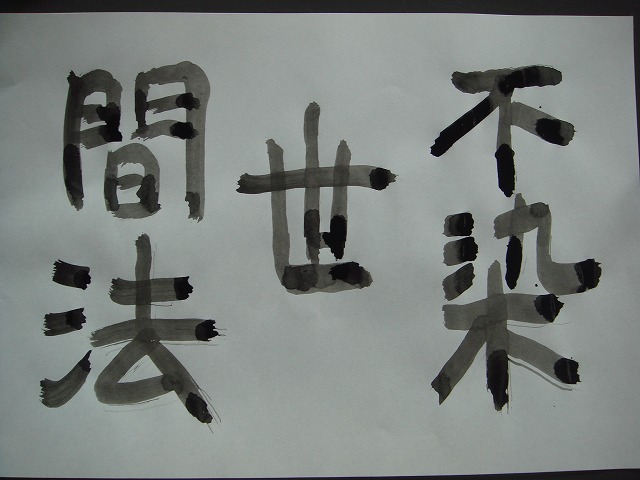 不染
世
間法